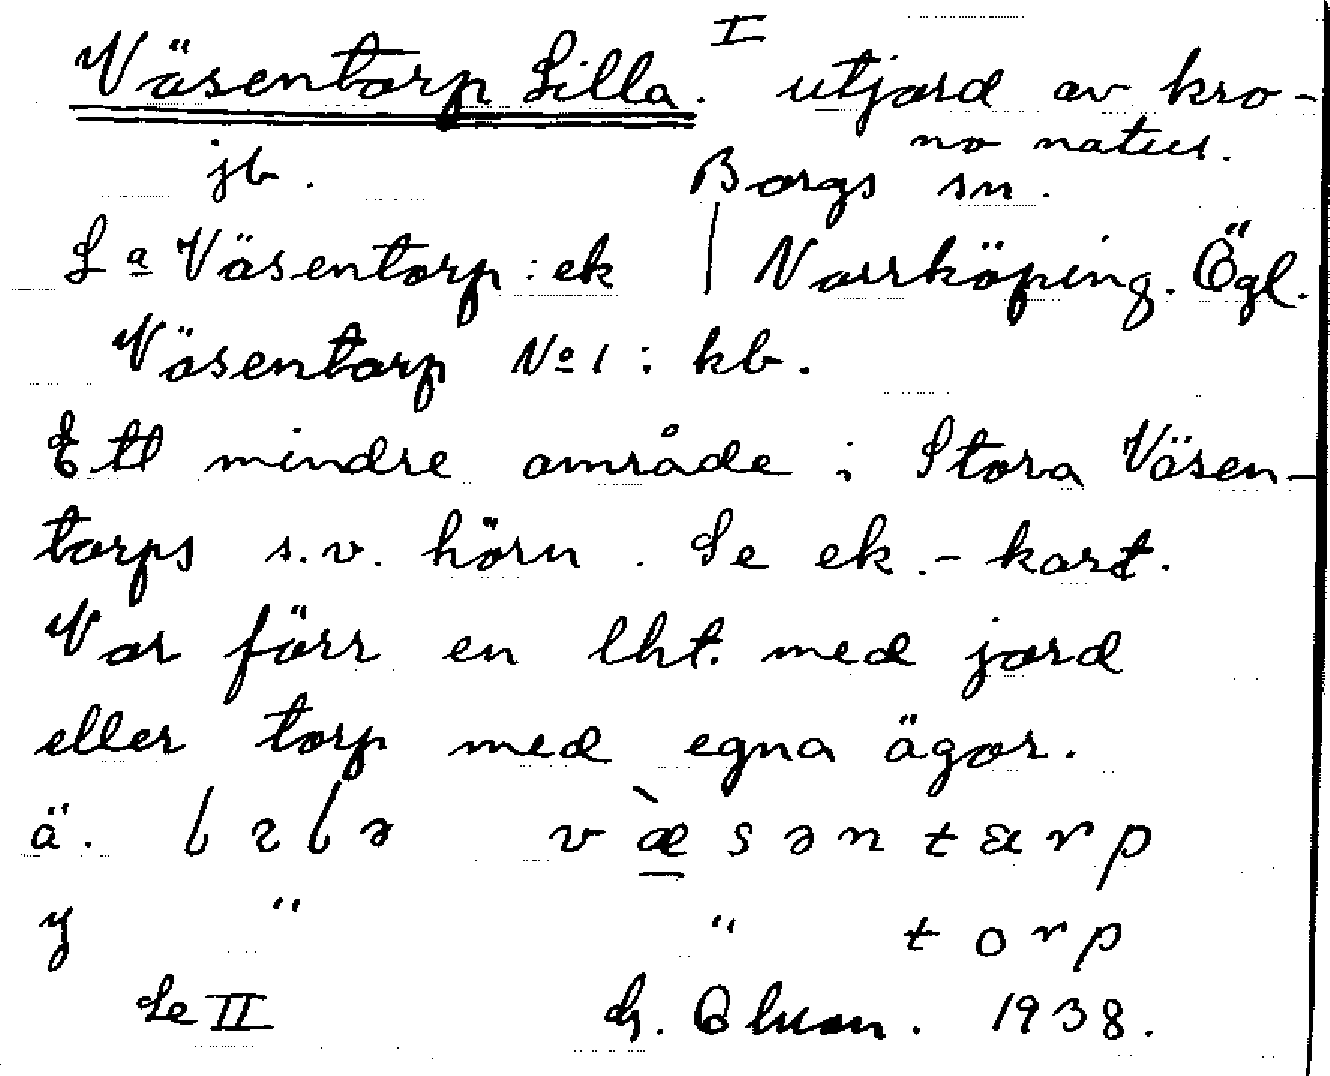 Väsentorp Lilla. I utjord av kro-
no natur.
jb. Borgs sn.
La Väsentorp : ek | Norrköping. Ögl.
Väsentorp No 1 : kb.
Ett mindre område i Stora Väsen-
torps s.v. hörn. Se ek.-kart.
Var förr en lht. med jord
eller torp med egna ägor.
ä. væ̀sәntarp
y " " torp
Se II G. 1938.